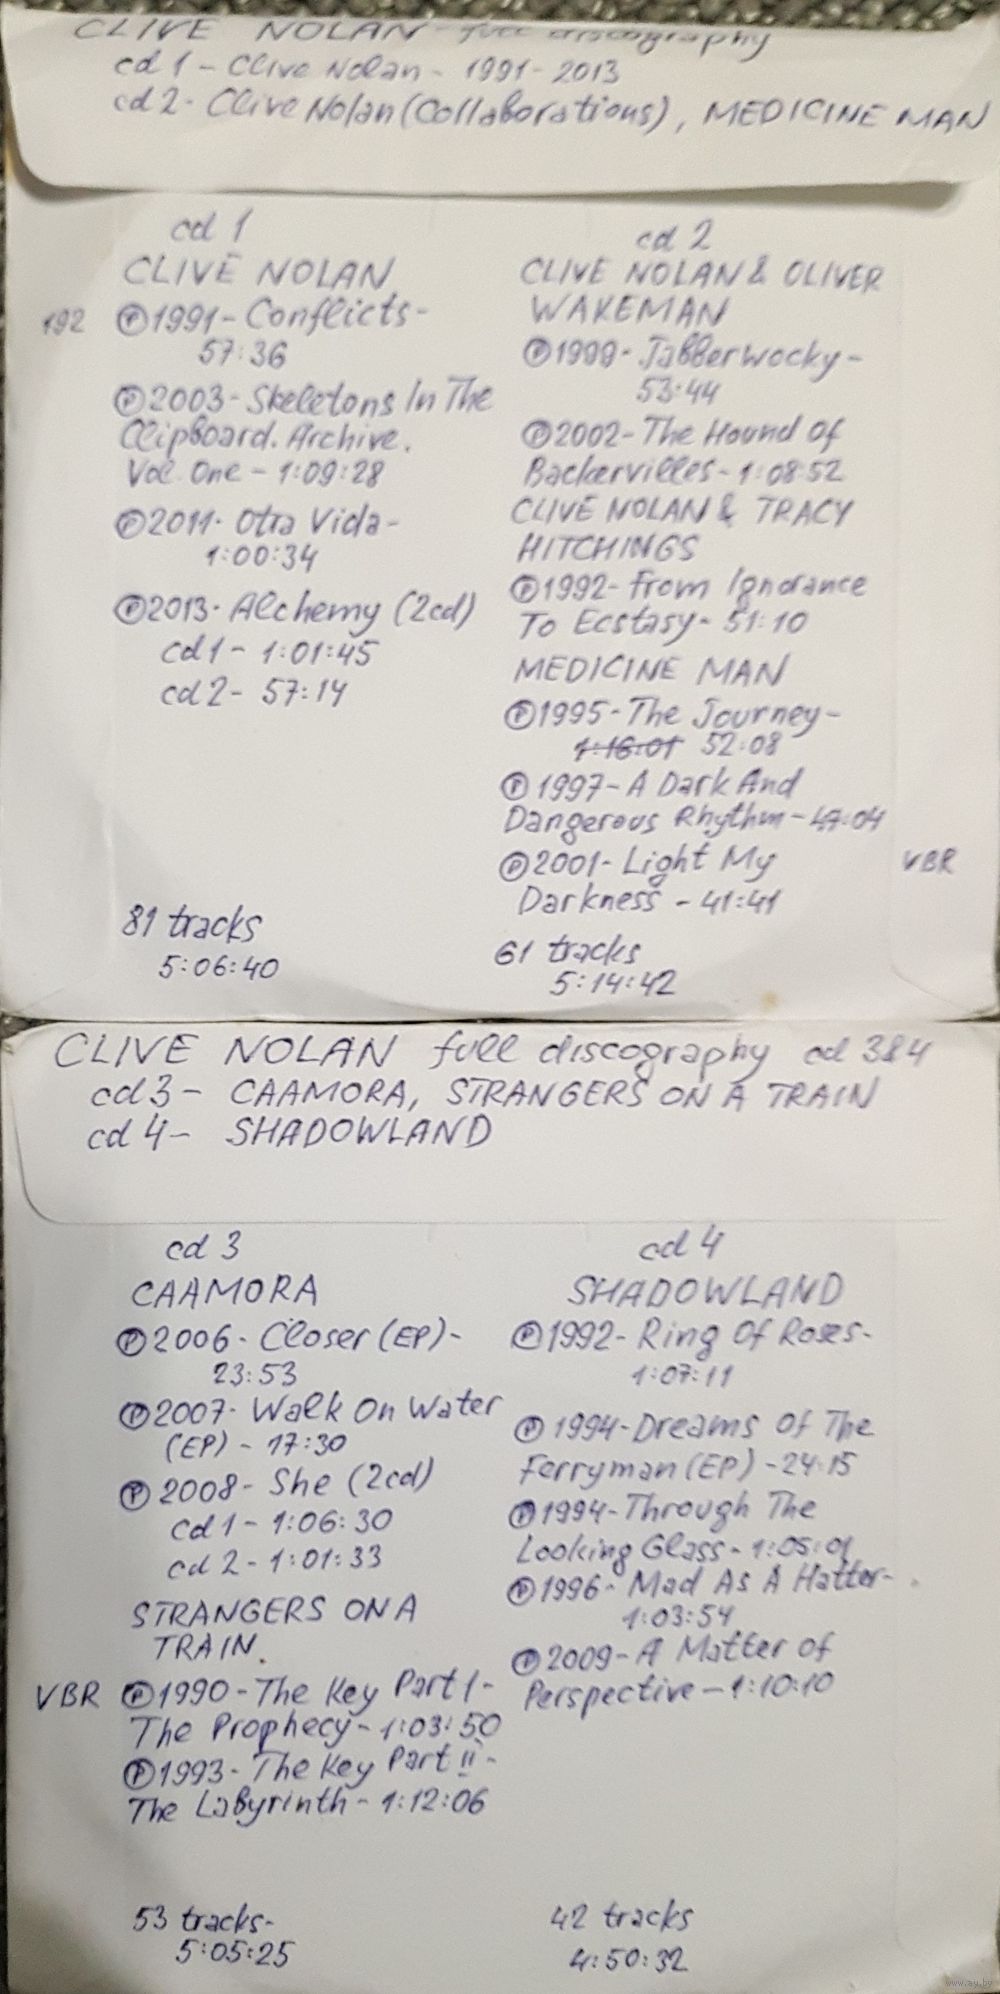 CLIVE NOLAN full discography
cd 1 - Clive Nolan - 1991-2013
cd 2- Clive Nolan (Collaborations), MEDICINE MAN
cd 1
CLIVE NOLAN
192 Ⓟ1991-Conflicts-
57:36
Ⓟ2003-Skeletons In The
Clipboard. Archive.
Vol. One - 1:09:28
Ⓟ2011- Otra Vida-
1:00:34
Ⓟ2013- Alchemy (2cd)
cd1- 1:01:45
cd2- 57:14
81 tracks
5:06:40
cd 2
CLIVE NOLAN & OLIVER
WAKEMAN
Ⓟ1999- Jabberwocky-
53:44
Ⓟ2002-The Hound Of
Backervilles-1:08:52
CLIVE NOLAN & TRACY
HITCHINGS
Ⓟ1992-From Ignorance
To Ecstasy- 51:10
MEDICINE MAN
Ⓟ1995-The Journey-
1:16:01 52:08
Ⓟ1997-A Dark And
Dangerous Rhythm-47:04
Ⓟ2001-Light My VBR
Darkness - 41:41
61 tracks
5:14:42
CLIVE NOLAN full discography cd 3&4
cd3- CAAMORA, STRANGERS ON A TRAIN
cd 4- SHADOWLAND
cd 3
CAAMORA
Ⓟ2006- Closer (EP)-
23:53
Ⓟ2007- Walk On Water
(EP) - 17:30
Ⓟ 2008- She (2cd)
cd1- 1:06:30
cd 2- 1:01:33
STRANGERS ON A
TRAIN.
VBR Ⓟ1990-The Key Part I-
The Prophecy-1:03:50
Ⓟ1993-The Key Part II-
The Labyrinth- 1:12:06
53 tracks-
5:05:25
cd 4
SHADOWLAND
Ⓟ1992-Ring Of Roses-
1:07:11
Ⓟ 1994-Dreams Of The
Ferryman (EP) -24:15
Ⓟ1994-Through The
Looking Glass- 1:05:01
Ⓟ1996- Mad As A Hatter-
1:03:54
Ⓟ2009-A Matter of
Perspective-1:10:10
42 tracks
4:50:32
www.ay.by